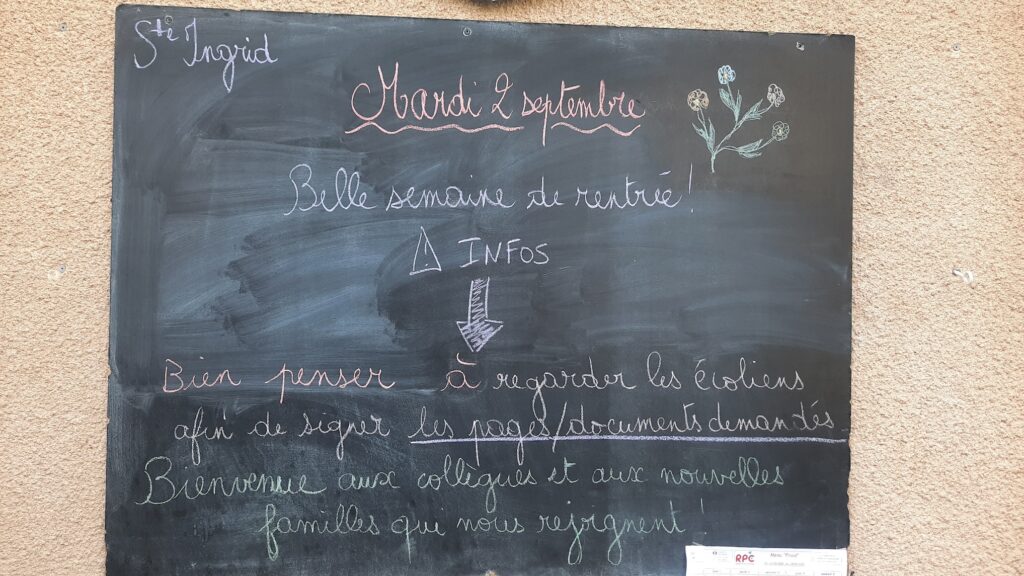 Ste Ingrid
Mardi 2 septembre
Belle semaine de rentrée !
⚠ INFOS
Bien penser à regarder les écoliens
afin de signer les pages/documents demandés
Bienvenue aux collègues et aux nouvelles
familles qui nous rejoignent !
RPC